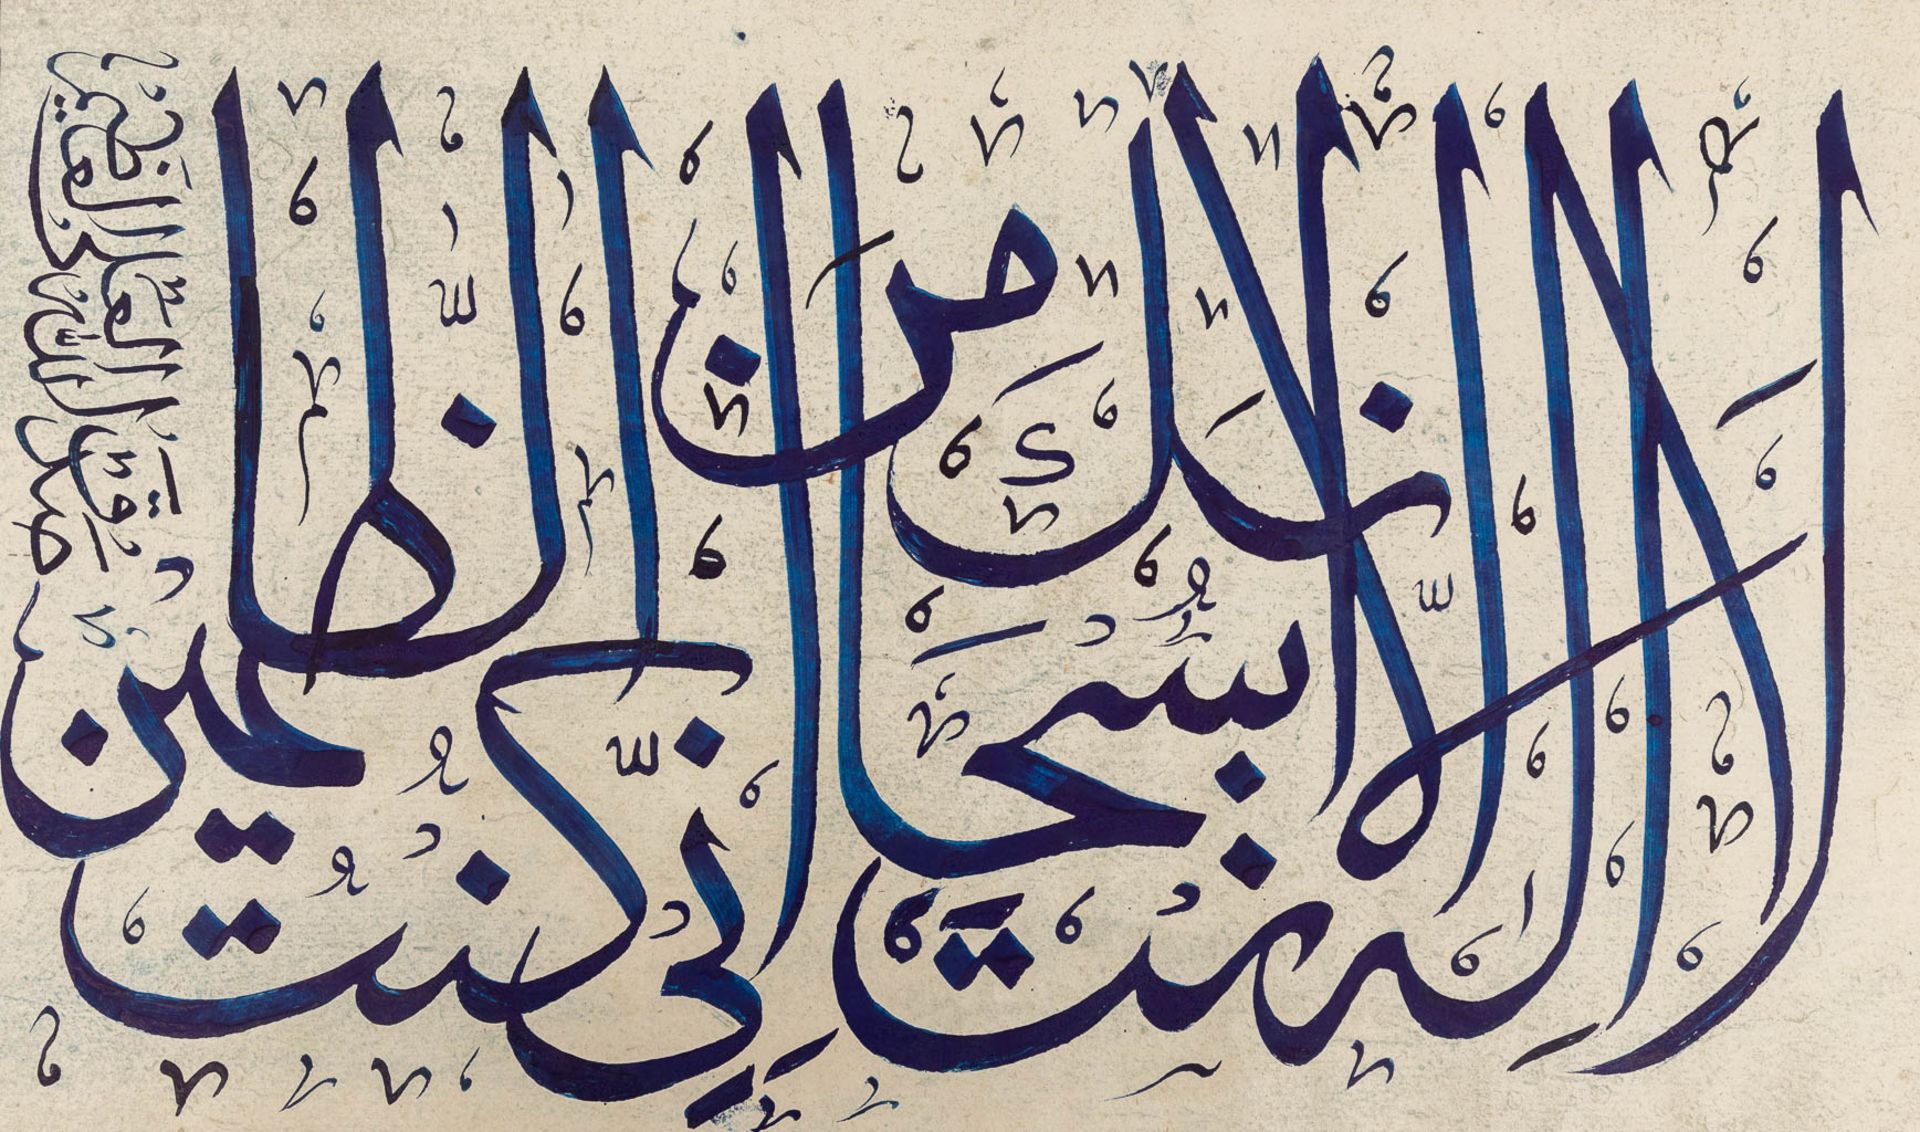 لا اله الا انت سبحانك اني كنت من الظالمين
صدق الله العلي العظيم